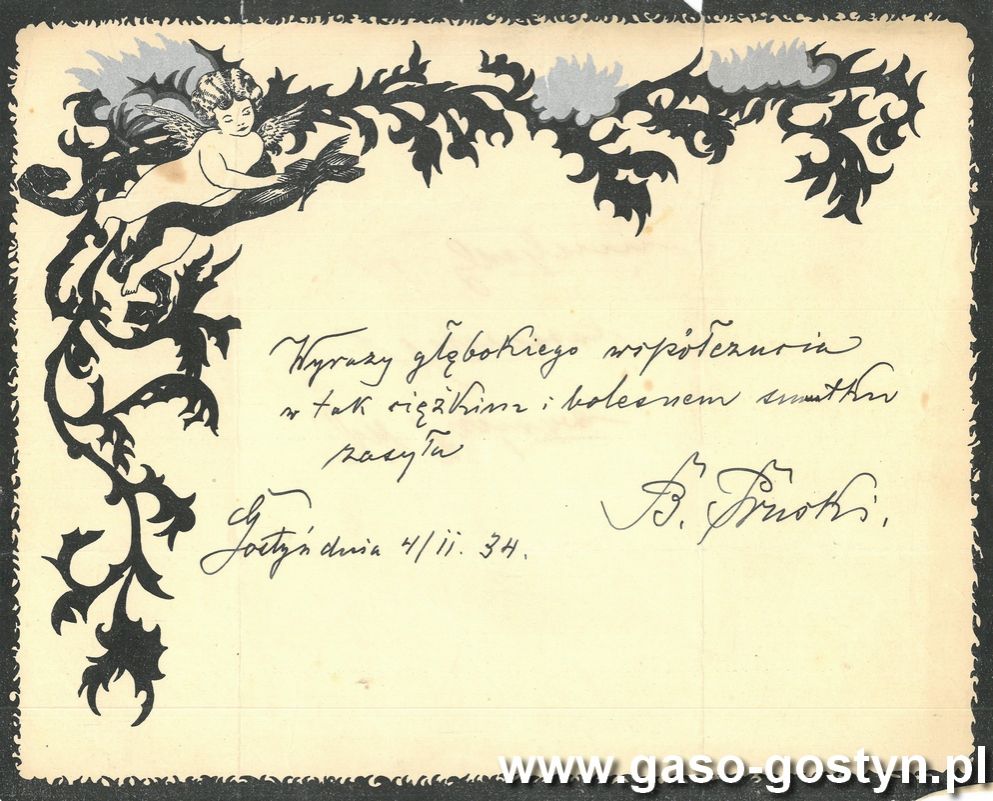 Wyrazy głębokiego współczucia
w tak ciężkim i bolesnem smutku
zasyła
B. Pruski.
Gostyń dnia 4/II. 34.
www.gaso-gostyn.pl